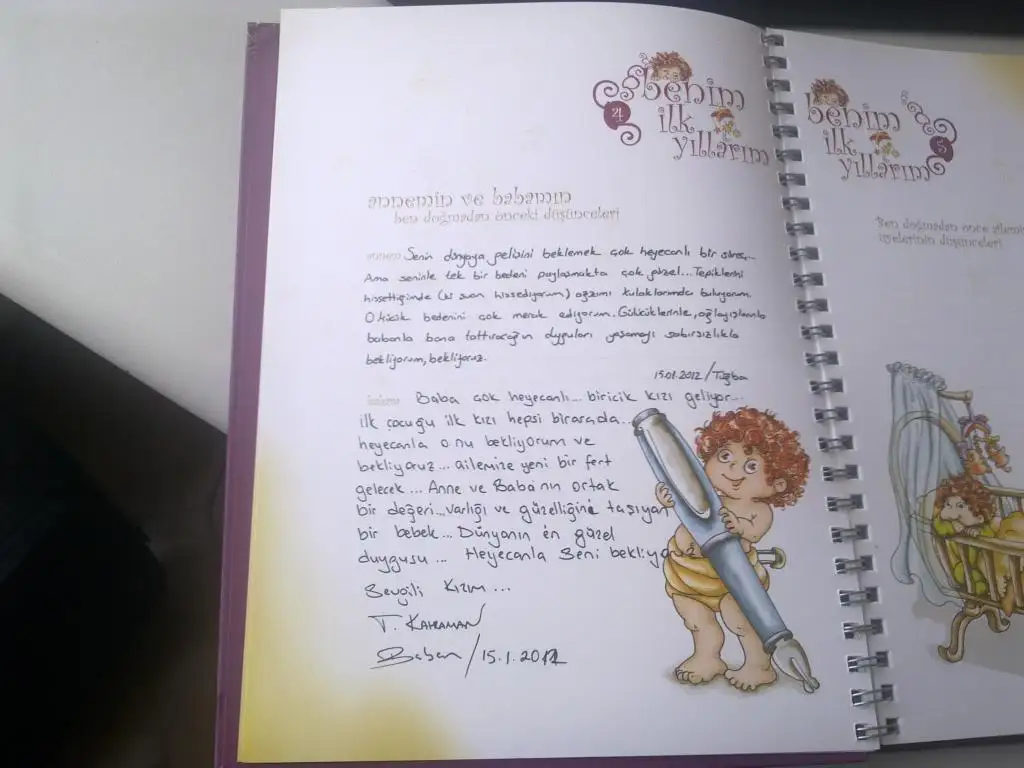 4
benim
ilk
yıllarım
annemin ve babamın
ben doğmadan önceki düşünceleri
annem Senin dünyaya gelişini beklemek çok heyecanlı bir süreç...
Ama seninle tek bir bedeni paylaşmakta çok güzel... Tepiklerini
hissettiğimde (ki şuan hissediyorum) ağzımı kulaklarımda buluyorum.
O küçük bedenini çok merak ediyorum. Gülücüklerinle, ağlayışlarınla
babanla bana tattıracağın duyguları yaşamayı sabırsızlıkla
bekliyorum, bekliyoruz.
15.01.2012 / Tuğba
babam Baba çok heyecanlı... biricik kızı geliyor...
ilk çocuğu ilk kızı hepsi birarada...
heyecanla onu bekliyorum ve
bekliyoruz... ailemize yeni bir fert
gelecek... Anne ve Baba'nın ortak
bir değeri... varlığı ve güzelliğini taşıyan
bir bebek... Dünyanın en güzel
duygusu... Heyecanla Seni bekliyoruz
Sevgili Kızım...
T. KAHRAMAN
Baban / 15.1.2012
benim
ilk
yıllarım
5
Ben doğmadan önce ailemin
üyelerinin düşünceleri